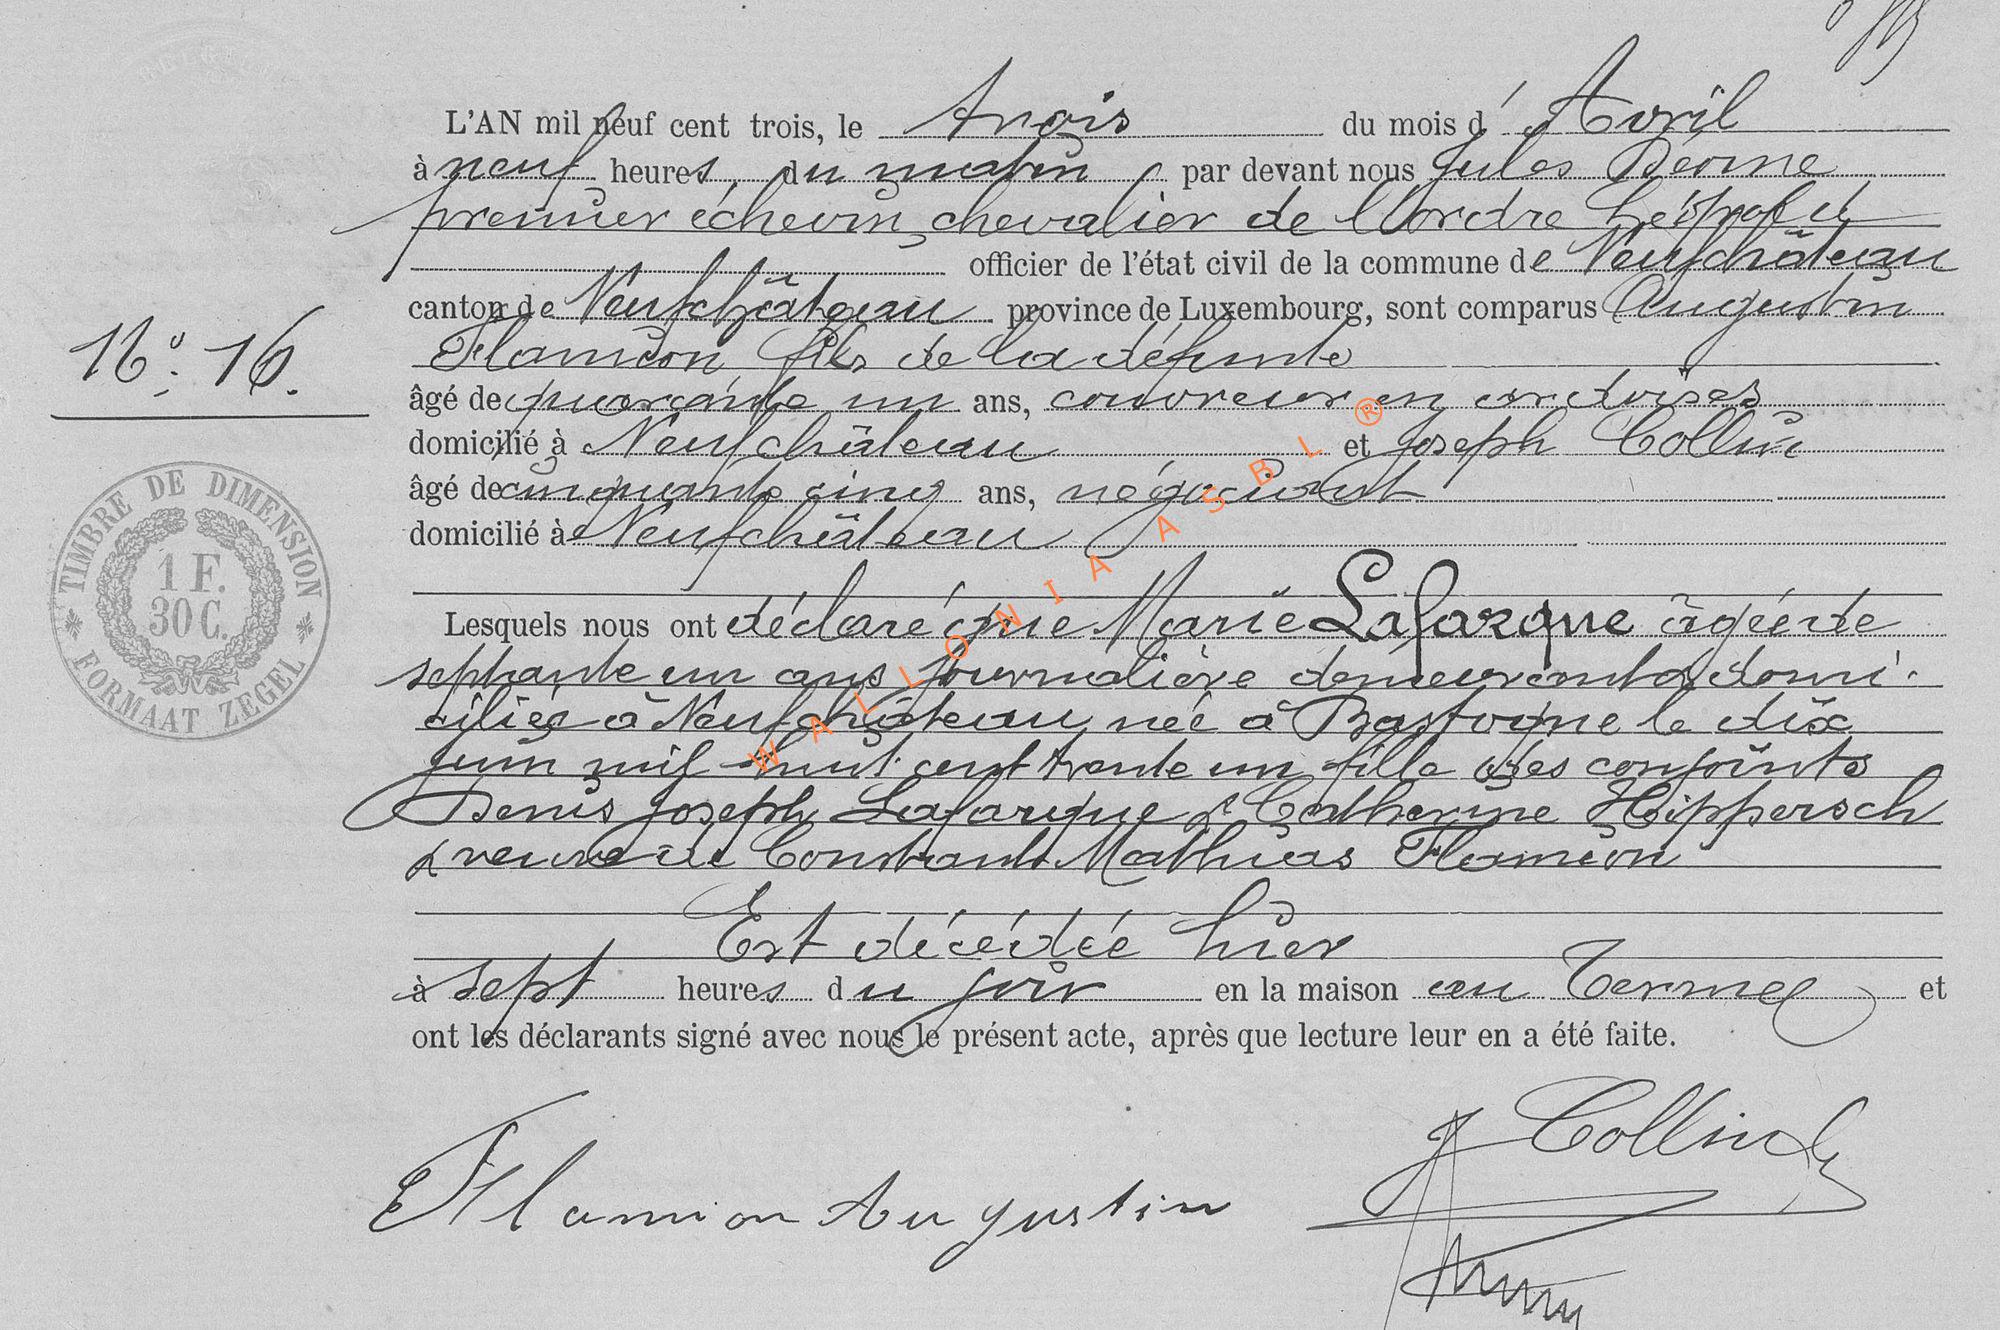 L'AN mil neuf cent trois, le trois du mois d'Avril
à neuf heures, du matin par devant nous Jules
premier échevin, chevalier de l'ordre Léopold
officier de l'état civil de la commune de Neufchâteau
canton de Neufchâteau province de Luxembourg, sont comparus Augustin
Flamion, fils de la défunte
âgé de quarante un ans, couvreur en ardoises
domicilié à Neufchâteau et Joseph Collin
âgé de cinquante cinq ans, négociant
domicilié à Neufchâteau
Lesquels nous ont déclaré que Marie Lafarque âgée de
septante un ans journalière demeurant & domi-
ciliée à Neufchâteau, née à Bastogne le dix
juin mil huit cent trente un fille des conjoints
Denis Joseph Lafarque & Catherine Hippersch
& veuve de Constant Mathias Flamion
Est décédée hier
à sept heures du soir en la maison au Terme et
ont les déclarants signé avec nous le présent acte, après que lecture leur en a été faite.
N°. 16.
TIMBRE DE DIMENSION
1 F.
30 C.
FORMAAT ZEGEL
WALLONIA ASBL ®
J Collin
Flamion Augustin